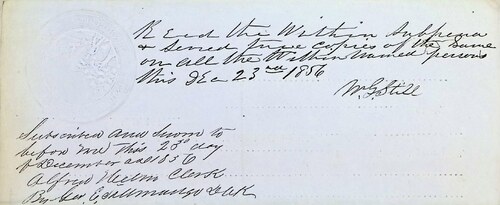 Recd the Within Subpoena
& Served true copies of the same
on all the Within named persons
this Dec 23rd 1856
W. G. Still
Subscribed and Sworn to
before me this 23d day
of December AD 1856
Alfred Clerk
By Geo. E.